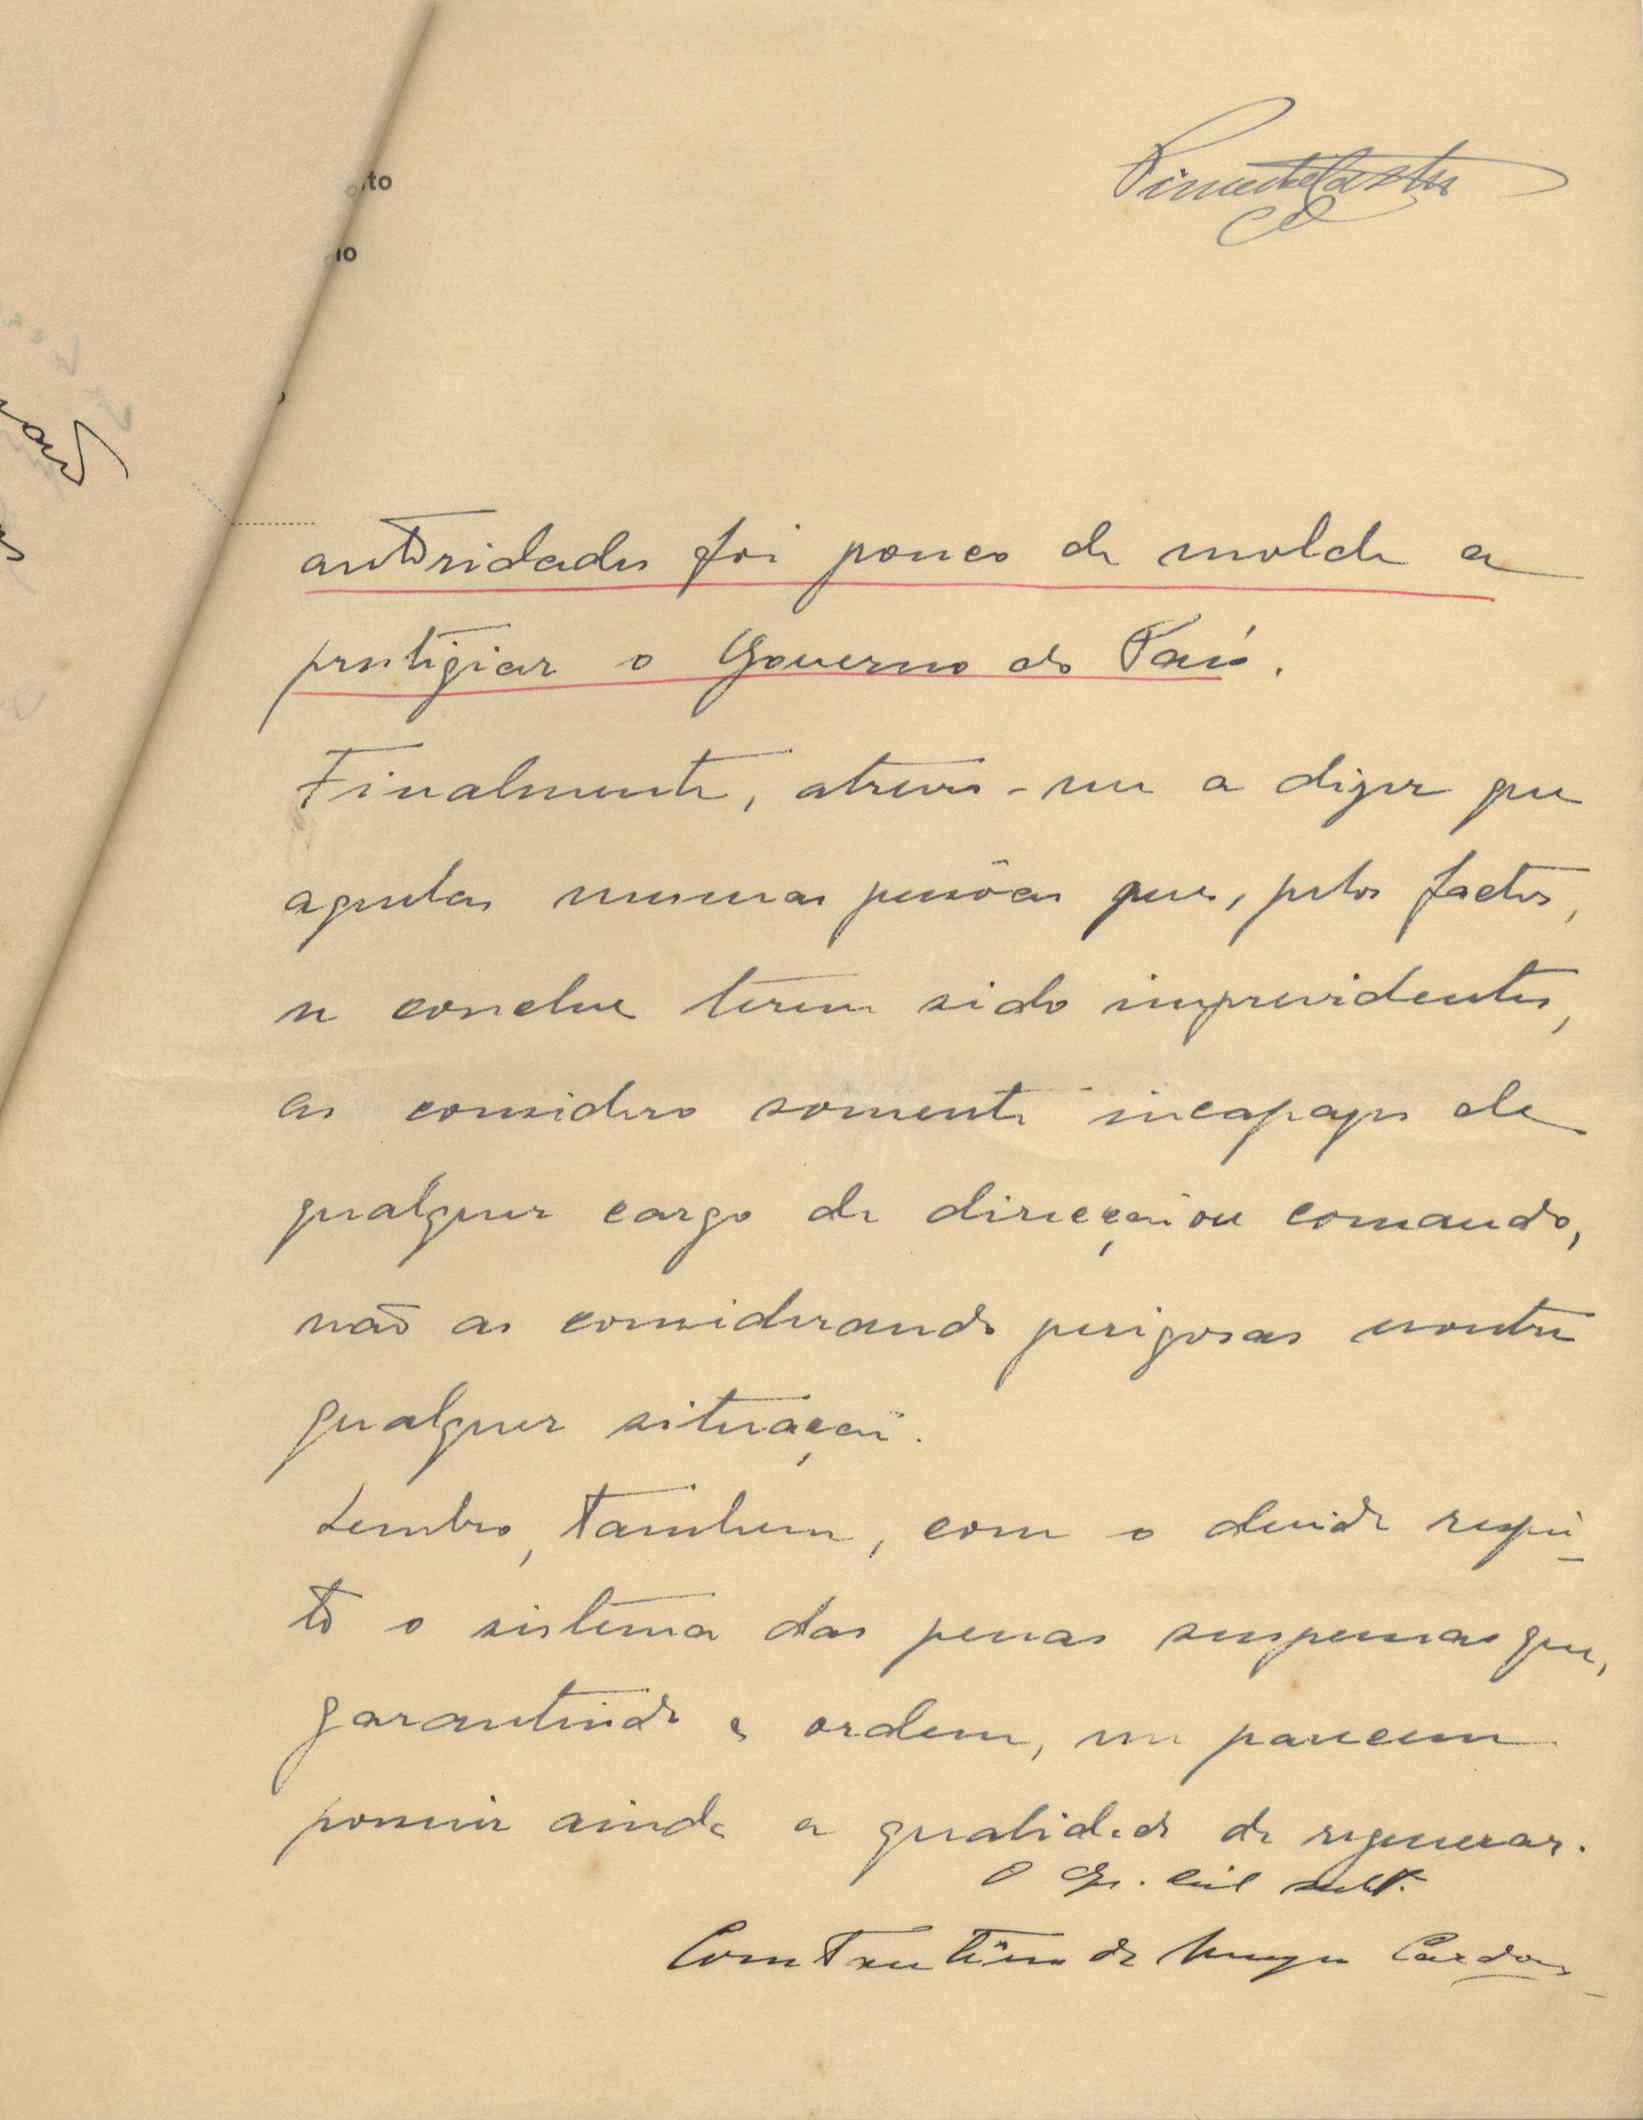 to
io
autoridades foi pouco de molde a
prestigiar o Governo do País.
Finalmente, atrevo-me a dizer que
aquelas mesmas pessôas que, pelos factos,
se conclue terem sido imprevidentes,
as considero somente incapazes de
qualquer cargo de direcção ou comando,
não as considerando perigosas contra
qualquer situação.
Lembro, tambem, com o devido respei-
to o sistema das penas suspensas que,
garantindo a ordem, me parecem
possuir ainda a qualidade de regenerar.
O civil
Constantino de Cardoso